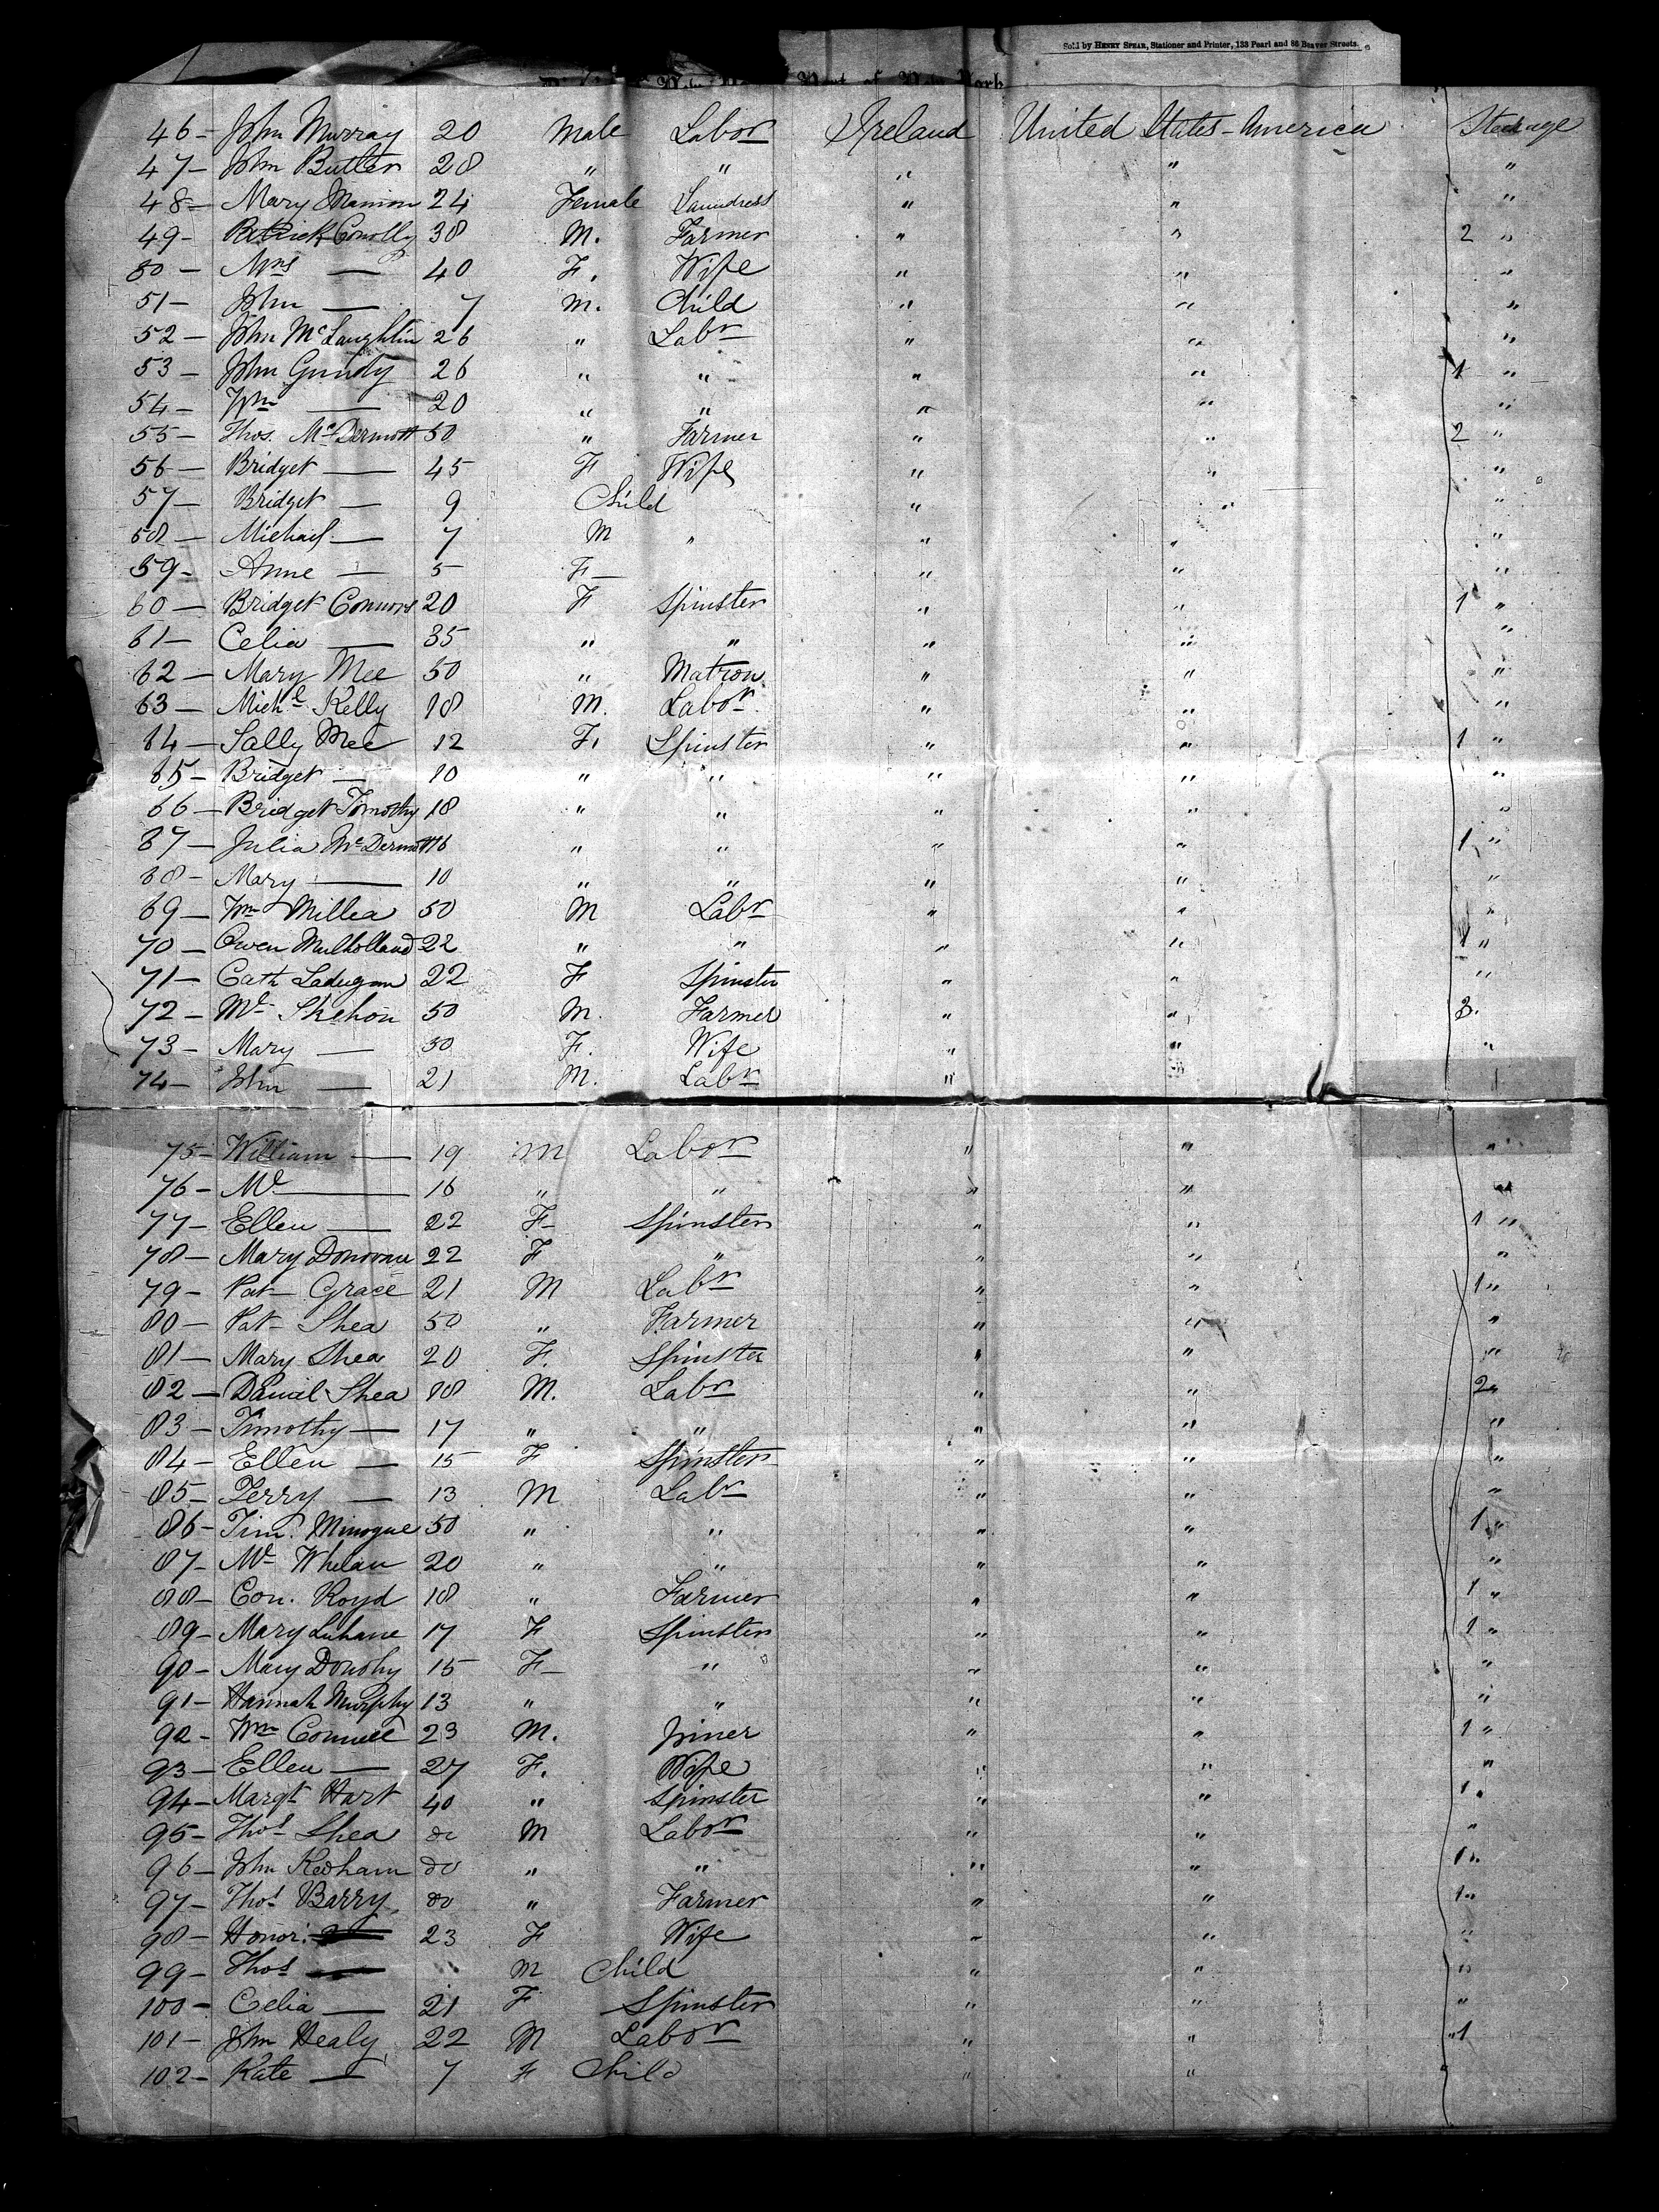 Sold by HENRY SPEAR, Stationer and Printer, 133 Pearl and 86 Beaver Streets.
Port of New York
46 - John Murray 20 Male Labor Ireland United States - America Steerage
47 - John Butler 28 " " " " "
48 - Mary 24 Female Laundress " " "
49 - Patrick Conolly 38 M. Farmer " " 2 "
50 - Mrs — 40 F. Wife " " "
51 - John — 7 M. Child " " "
52 - John McLaughlin 26 " Labr " " "
53 - John Grundy 26 " " " " 1 "
54 - Wm — 20 " " " " "
55 - Thos. McDermott 50 " Farmer " " 2 "
56 - Bridget — 45 F Wife " " "
57 - Bridget — 9 Child " " "
58 - Michael — 7 M " " " "
59 - Anne — 5 F — " " "
60 - Bridget Connors 20 F Spinster " " 1 "
61 - Celia — 35 " " " " "
62 - Mary Mee 50 " Matron " " "
63 - Michl Kelly 18 M. Labor " " "
64 - Sally Mee 12 F. Spinster " " 1 "
65 - Bridget — 10 " " " " "
66 - Bridget Timothy 18 " " " " "
67 - Julia McDermott 16 " " " " 1 "
68 - Mary — 10 " " " " "
69 - Wm Millea 50 M Labr " " "
70 - Owen Mulholland 22 " " " " 1 "
71 - Cath Ladugan 22 F Spinster " " "
72 - Ml Shehon 50 M. Farmer " " 3.
73 - Mary — 50 F. Wife " " "
74 - John — 21 M. Labr " " 1
75 - William — 19 M Labor " " "
76 - Ml — 16 " " " " "
77 - Ellen — 22 F - Spinster " " 1 "
78 - Mary Donovan 22 F " " " "
79 - Pat Grace 21 M Labr " " 1 "
80 - Pat Shea 50 " Farmer " " "
81 - Mary Shea 20 F. Spinster " " "
82 - Daniel Shea 18 M. Labr " " 2 "
83 - Timothy — 17 " " " " "
84 - Ellen — 15 F Spinster " " "
85 - Jerry — 13 M Labr " " "
86 - Tim. Minogue 50 " " " " 1 "
87 - Ml Whelan 20 " " " " "
88 - Con. 18 " Farmer " " 1 "
89 - Mary Luhane 17 F Spinster " " 1 "
90 - Mary Donohy 15 F - " " " "
91 - Hannah Murphy 13 " " " " "
92 - Wm Connell 23 M. Joiner " " 1 "
93 - Ellen — 27 F. Wife " " "
94 - Margt Hart 40 " Spinster " " 1 "
95 - Thos Shea do M Labor " " "
96 - John do " " " " 1 "
97 - Thos Barry do " Farmer " " 1 "
98 - Honor: 23 F Wife " " "
99 - Thos M Child " " "
100 - Celia — 21 F Spinster " " "
101 - John Healy 22 M Labor " " " 1
102 - Kate — 7 F Child " " "